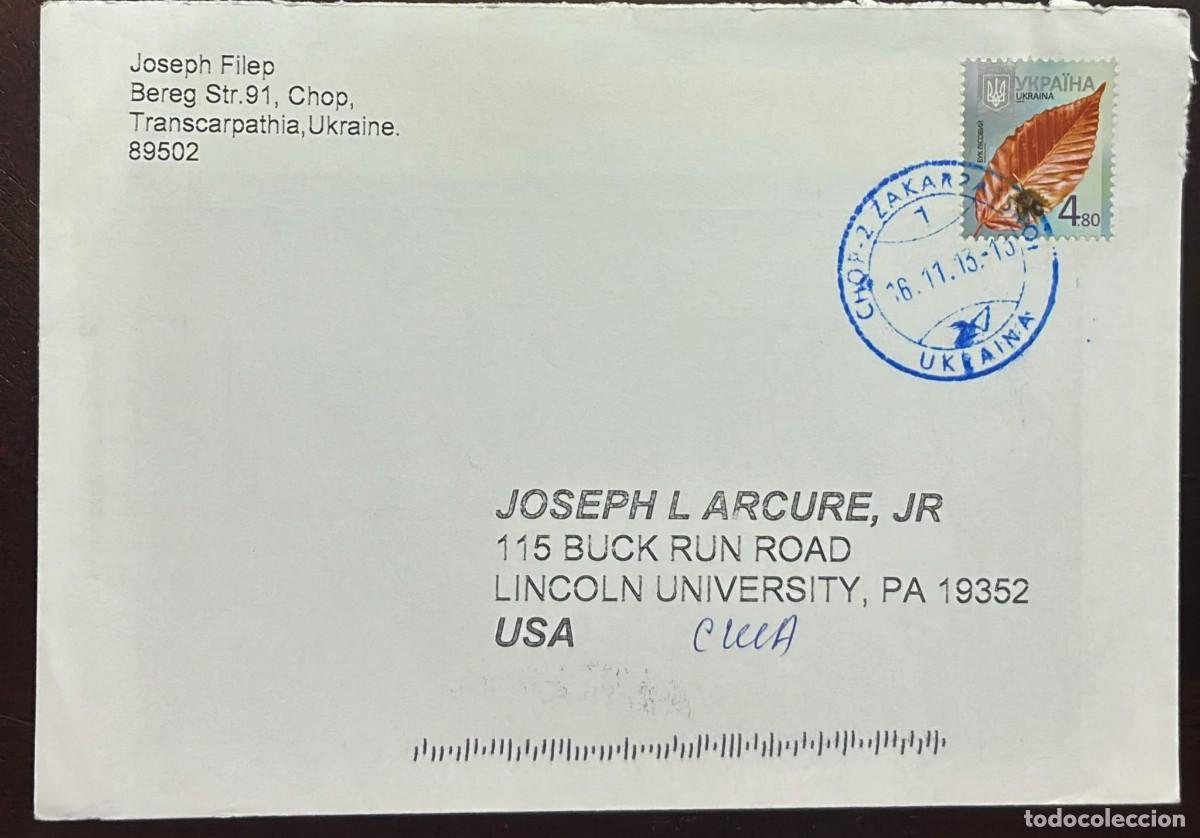 Joseph Filep
Bereg Str.91, Chop,
Transcarpathia,Ukraine.
89502
УКРАЇНА
UKRAINA
БУК ЛІСОВИЙ
4.80
CHOP-2
1
16.11.13.-
UKRAINA
JOSEPH L ARCURE, JR
115 BUCK RUN ROAD
LINCOLN UNIVERSITY, PA 19352
USA США
todocoleccion